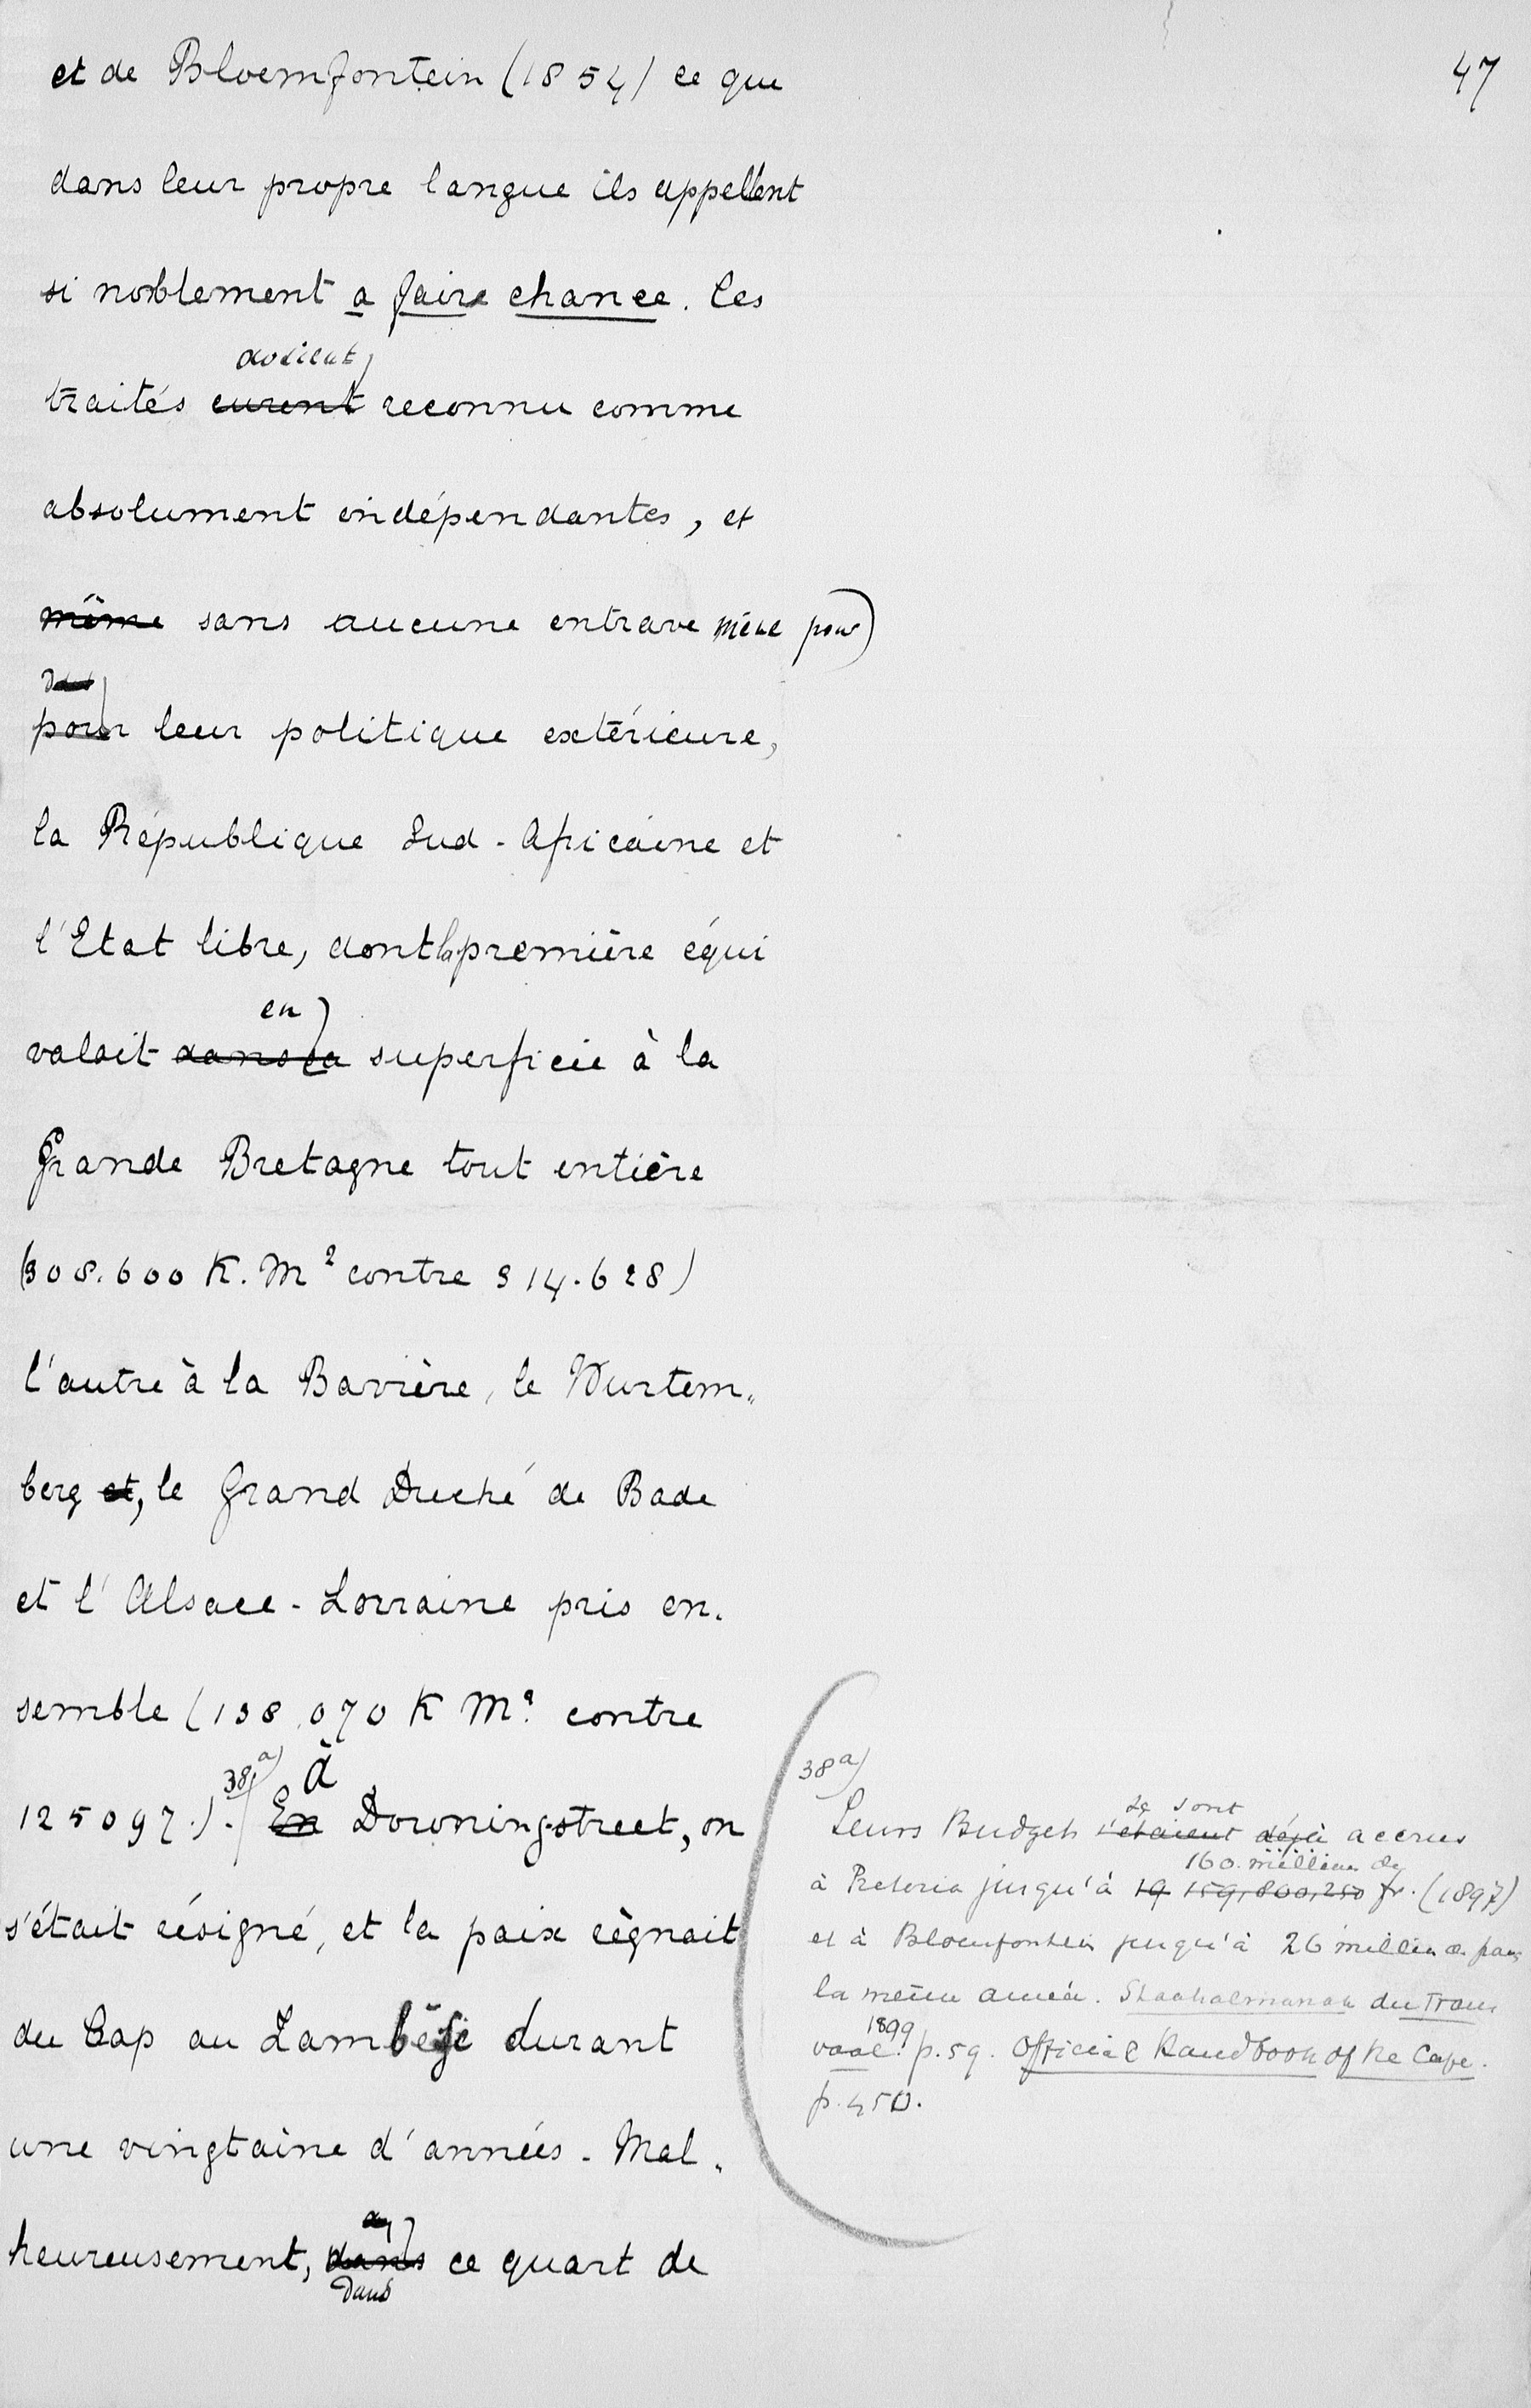 47
et de Bloemfontein (1854) ce que
dans leur propre langue ils appellent
si noblement a faire chance. Ces
avaient
traités eurent reconnu comme
absolument indépendantes, et
même sans aucune entrave même pour
pour leur politique extérieure,
la République Sud-Africaine et
l'Etat libre, dont la première équi
en
valait dans sa superficie à la
Grande Bretagne tout entière
(308.600 K.M² contre 314.628)
l'autre à la Bavière, le Wurtem„
berg et, le Grand Duché de Bade
et l'Alsace-Lorraine pris en.
semble (138.070 K M² contre
38a) à
125097.). En Downingstreet, on
s'était résigné, et la paix règnait
du Cap au Zambési durant
une vingtaine d'années. Mal„
heureusement, dans ce quart de
dans
38a)
se sont
Leurs Budgets s'étaient déjà accrus
160 millions de
à Pretoria jusqu'à 19 159,800,250 fr. (1897)
et à Bloemfontein jusqu'à 26 million de francs
la même année. Staatsalmanak du Trans
1899
vaal. p. 59. Official Handbook of the Cape.
p. 450.